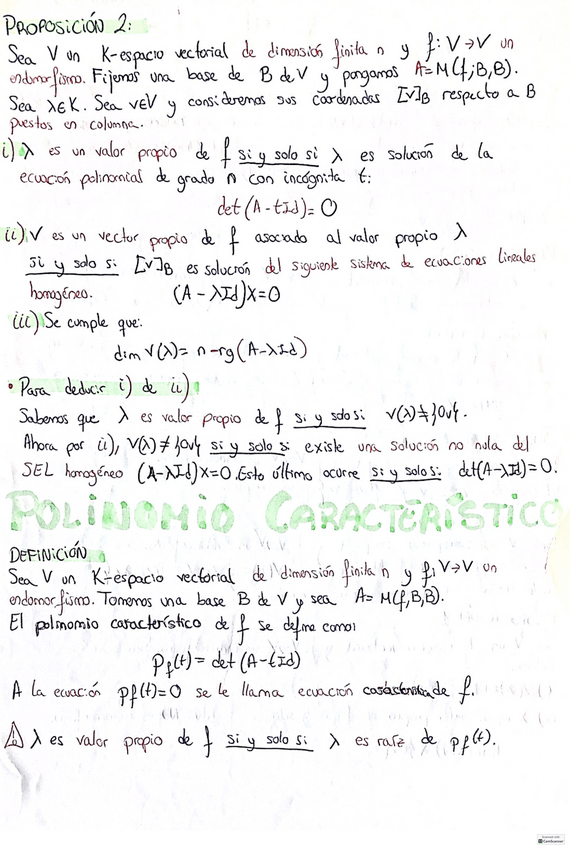 PROPOSICIÓN 2:
Sea V un K-espacio vectorial de dimensión finita n y f: V→V un
endomorfismo. Fijemos una base de B de V y pongamos A=M(f;B,B).
Sea λ∈K. Sea v∈V y consideremos sus coordenadas [v]B respecto a B
puestos en columna.
i) λ es un valor propio de f si y solo si λ es solución de la
ecuación polinomial de grado n con incógnita t:
det(A-tId)=0
ii) V es un vector propio de f asociado al valor propio λ
si y solo si [v]B es solución del siguiente sistema de ecuaciones lineales
homogéneo. (A-λId)X=0
iii) Se cumple que:
dim V(λ)= n-rg(A-λId)
• Para deducir i) de ii)
Sabemos que λ es valor propio de f si y solo si V(λ)≠{0v}.
Ahora por ii), V(λ)≠{0v} si y solo si existe una solución no nula del
SEL homogéneo (A-λId)X=0. Esto último ocurre si y solo si det(A-λId)=0.
POLINOMIO CARACTERÍSTICO
DEFINICIÓN
Sea V un K-espacio vectorial de dimensión finita n y f: V→V un
endomorfismo. Tomemos una base B de V y sea A= M(f,B,B).
El polinomio característico de f se define como:
Pf(t)= det(A-tId)
A la ecuación pf(t)=0 se le llama ecuación característica de f.
⚠ λ es valor propio de f si y solo si λ es raíz de pf(t).
Scanned with
CamScanner